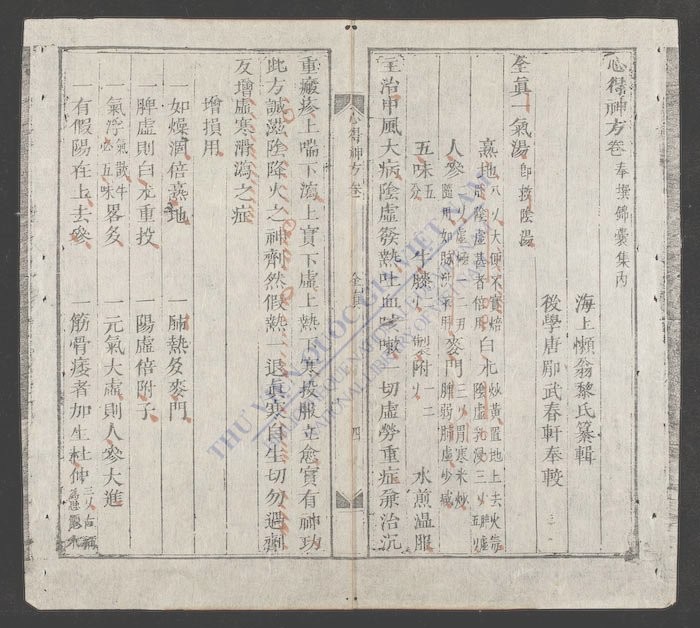 心得神方卷 奉撰錦囊集內
海上懶翁黎氏纂輯
後學唐郿武春軒奉較
全真一氣湯 即救陰湯
熟地 八𠆤大便不實焙 陰虛甚者倍用 白朮 炒黃置地上去火
人參 麥門 三𠆤胃寒米炒 肺弱肺虛少
五味 牛膝 二 製附 一二 水煎温服
主治中風大病陰虛發熱吐血咳嗽一切虛勞重症兼治沉
心得神方卷 全真 四
重癍疹上喘下瀉上實下虛上熱下寒投服立愈實有神功
此方誠滋陰降火之神劑然假熱一退真寒自生切勿過劑
反增虛寒滑瀉之症
增損用
一如燥涸倍熟地 一肺熱多麥門
一脾虛則白朮重投 一陽虛倍附子
一氣浮氣散牛五味畧多 一元氣大虛則人參大進
一有假陽在上去參 一筋骨痿者加生杜仲
THƯ VIỆN QUỐC GIA VIỆT NAM
BIBLIOTHEQUE NATIONALE DU VIETNAM
NATIONAL LIBRARY OF VIETNAM